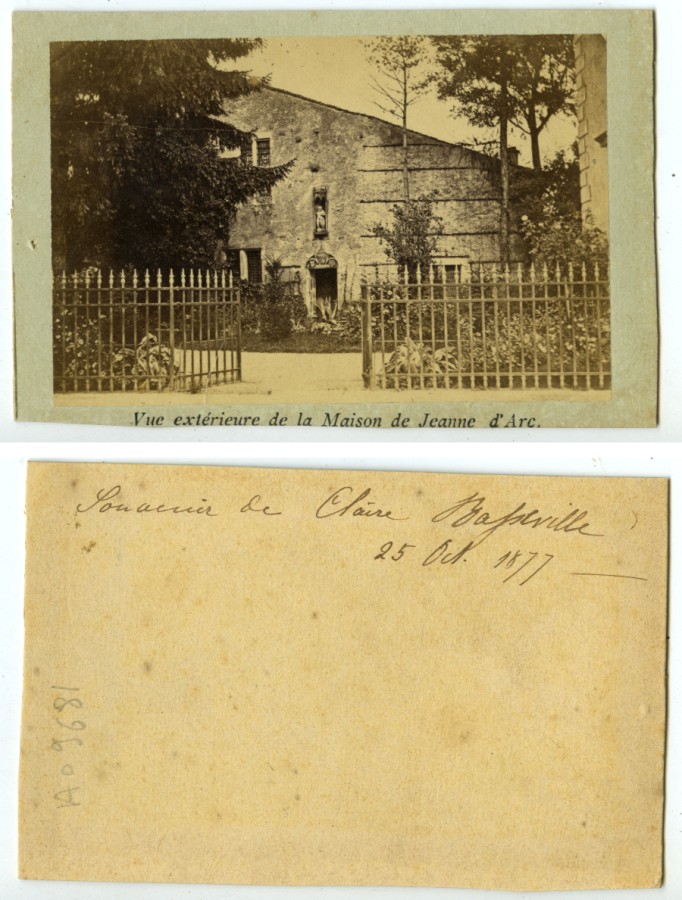 Vue extérieure de la Maison de Jeanne d'Arc.
Souvenir de Claire Basseville
25 Oct. 1877 —
A09681